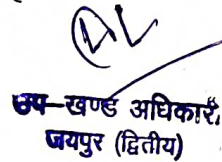 उप-खण्ड अधिकारी,
जयपुर (द्वितीय)